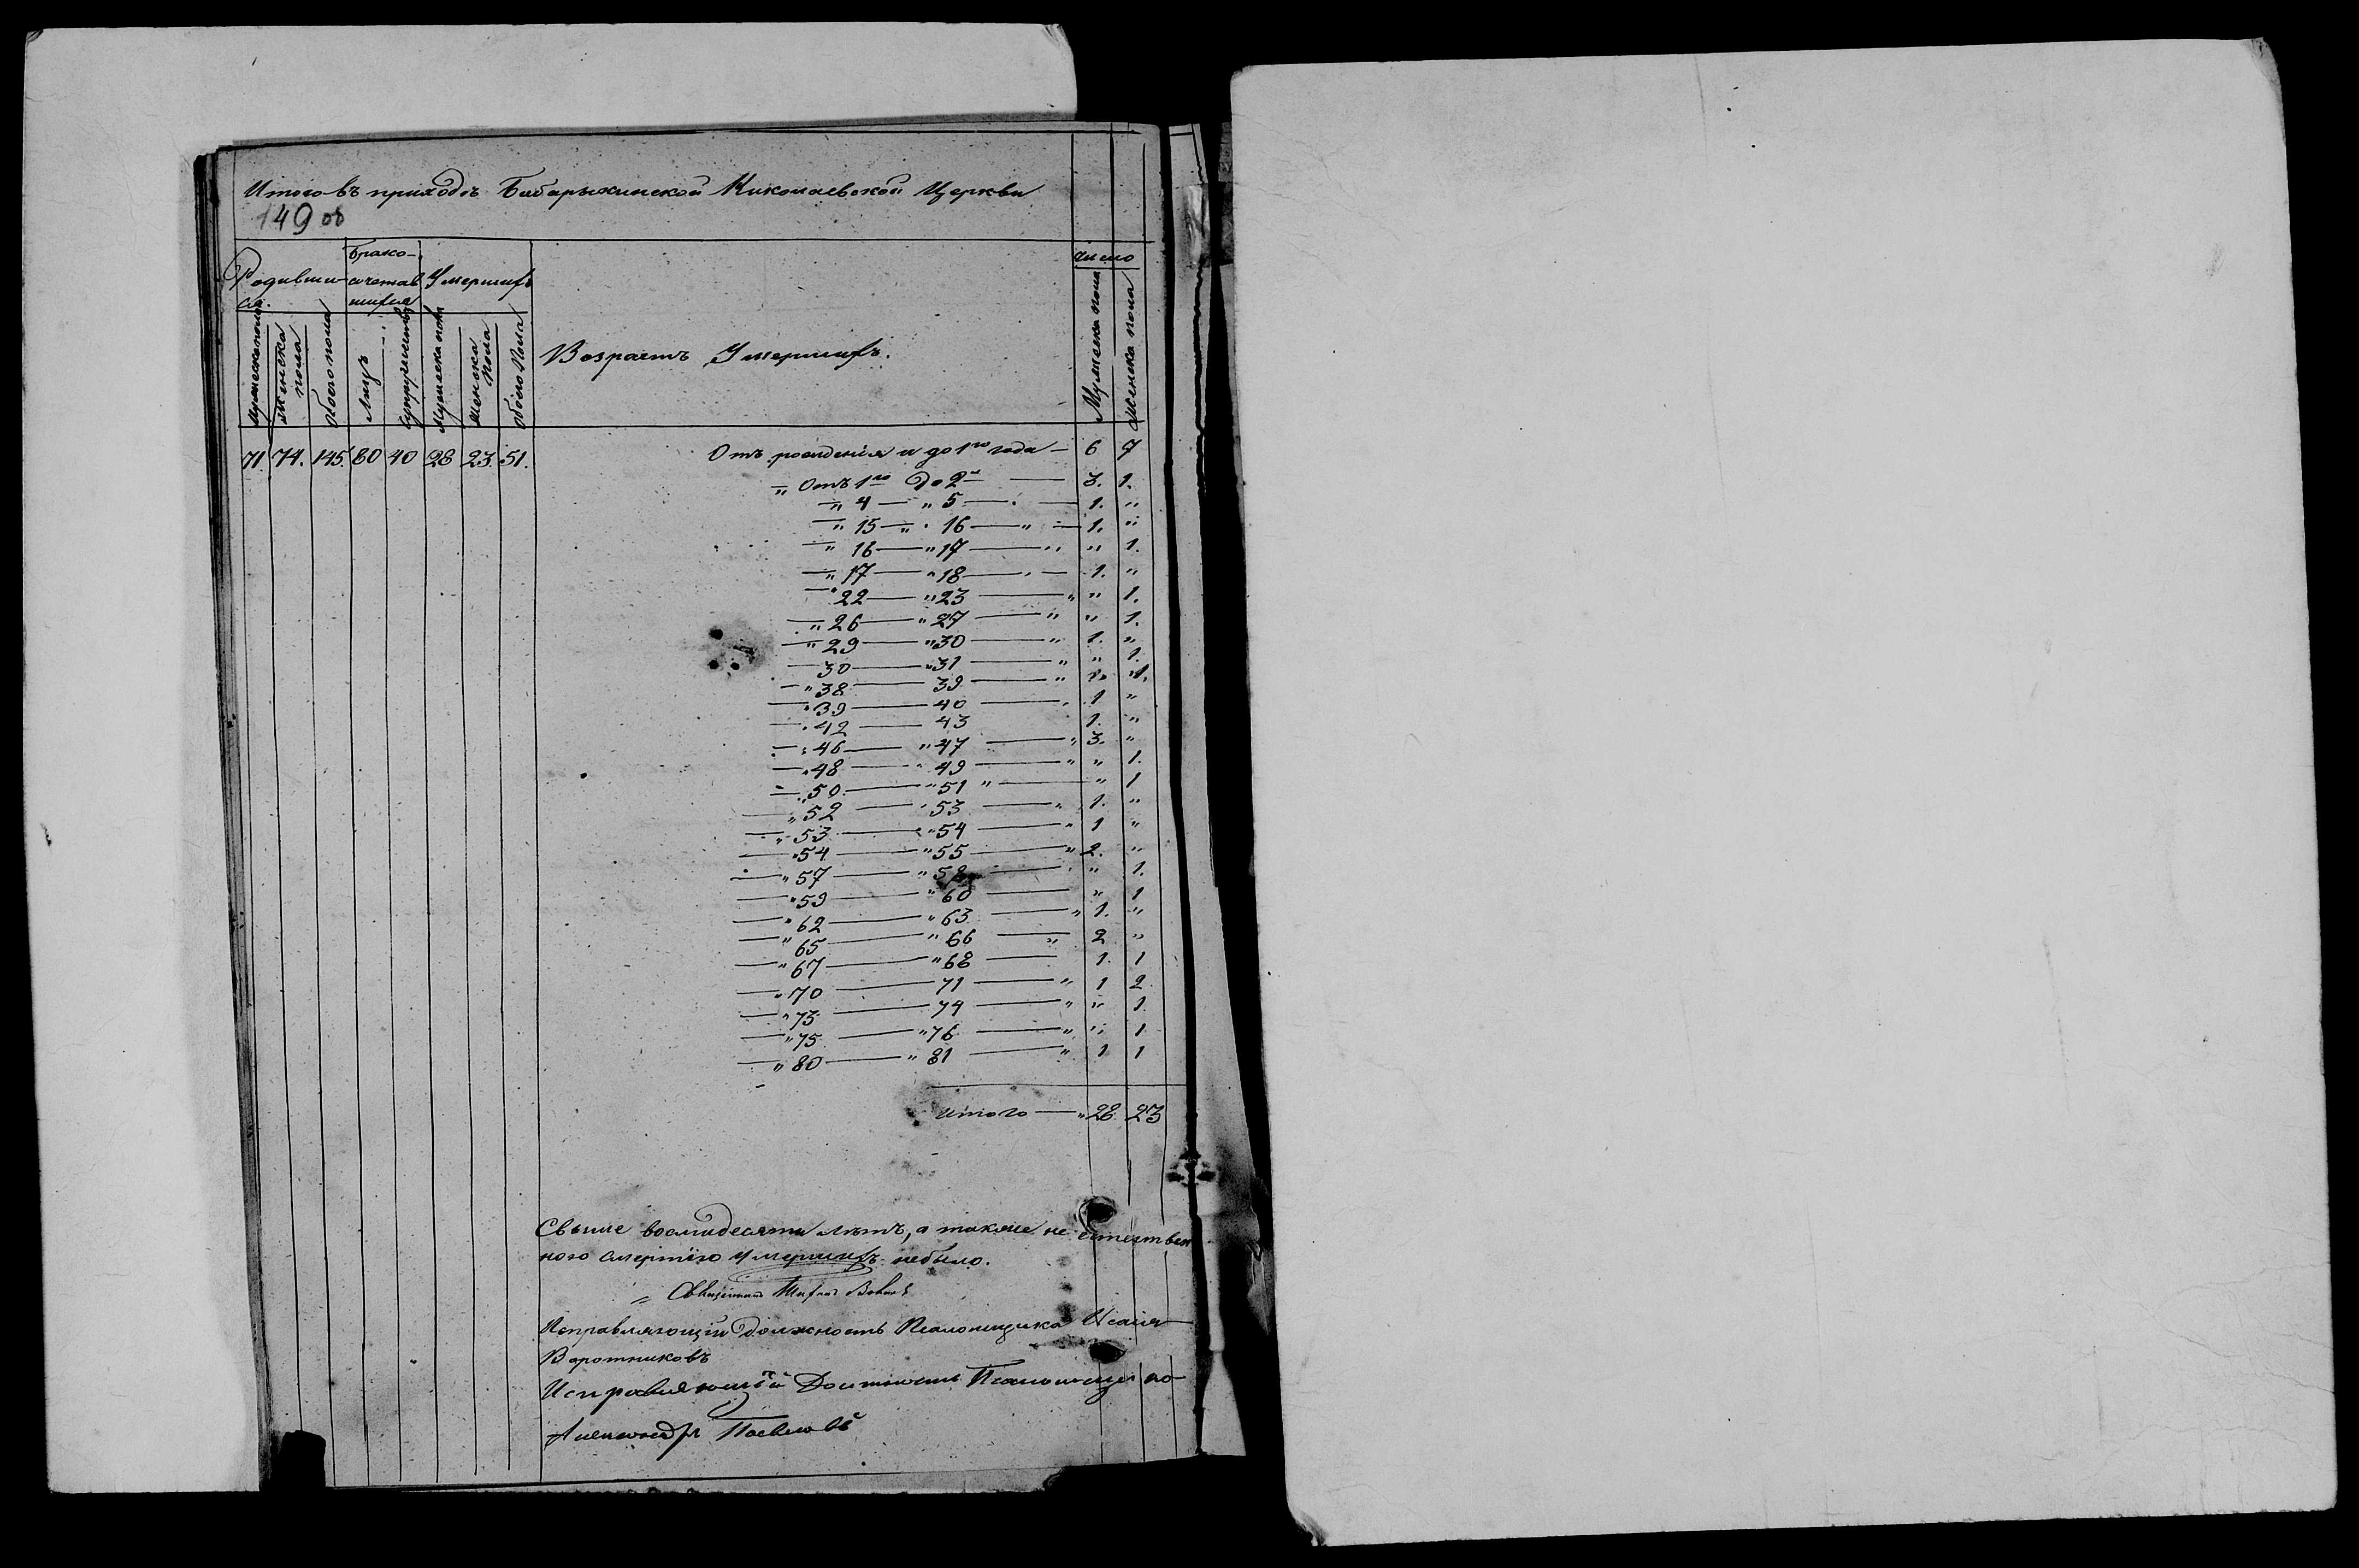 Итого въ приходѣ Бабарыкинской Николаевской Церкви
149 об
Родивши-
ся.
Брако-
сочетав
шихся
Умершихъ
Число
Мужеска пола
Женска
пола
Обоего пола
Лицъ
Супружествъ
Мужеска пола
Женска
пола
Обоего пола
Возрастъ Умершихъ.
Мужеска пола
Женска пола
71. 74. 145. 80 40 28 23. 51.
Отъ рожденія и до 1го года — 6 7
„ Отъ 1го До 2х — 3. 1.
— „ 4 — „ 5 — 1. „
— „ 15 — „ 16 — „ — 1. „
— „ 16 — „ 17 — „ „ 1.
— „ 17 — „ 18 — 1. „
— „ 22 — „ 23 — „ „ 1.
— „ 26 — „ 27 — „ „ 1.
— „ 29 — „ 30 — „ 1. „
— 30 — „ 31 — „ „ 1.
— „ 38 — 39 — „ 1.
— „ 39 — 40 — „ 1 „
— „ 42 — 43 1. „
— „ 46 — „ 47 — „ 3. „
— „ 48 — „ 49 — „ „ 1.
— „ 50 — „ 51 „ — „ 1
— „ 52 — „ 53 — „ 1. „
— „ 53 — „ 54 — „ 1 „
— „ 54 — „ 55 — „ 2. „
— „ 57 — „ 58 — „ 1.
— „ 59 — „ 60 — „ 1
— „ 62 — „ 63 — „ 1. „
— „ 65 — „ 66 — „ 2 „
— „ 67 — „ 68 — 1. 1
— „ 70 — 71 — „ 1 2
— „ 73 — 74 — „ „ 1
— „ 75 — „ 76 — „ „ 1
— „ 80 — „ 81 — „ 1 1
итого — „ 28. 23
Свыше восмидесяти лѣтъ, а также не естествен
ною смертію умершихъ небыло.
Священникъ
Исправляющій должность Псаломщика Исаія
Воротниковъ
Исправляющій Должность Псаломщика
Александръ Павловъ